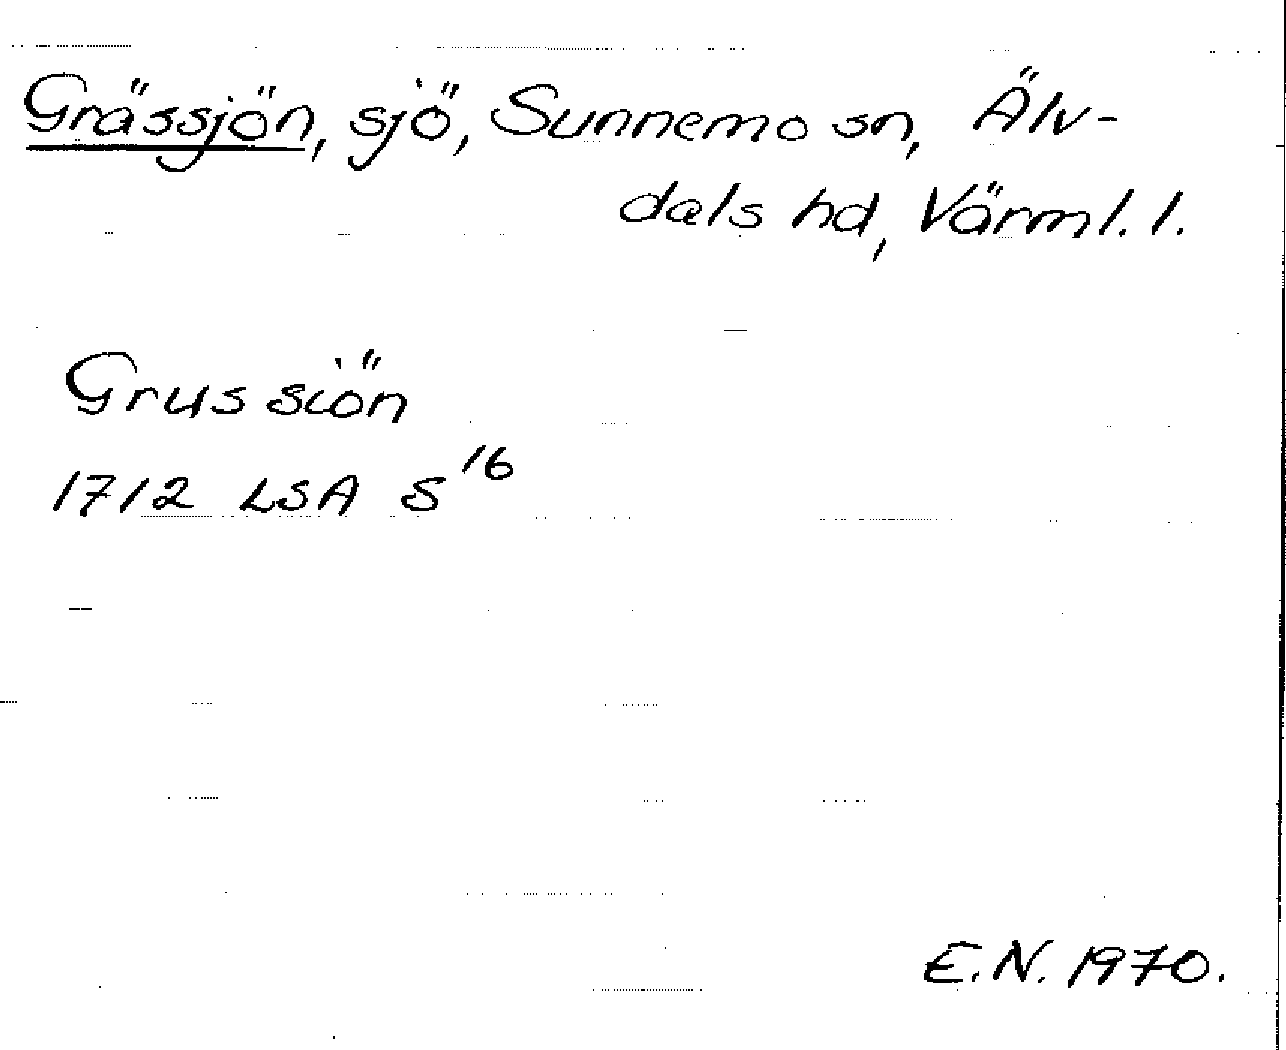 Grässjön, sjö, Sunnemo sn, Älv-
dals hd, Värml. l.
Grussiön
1712 LSA S16
E.N. 1970.